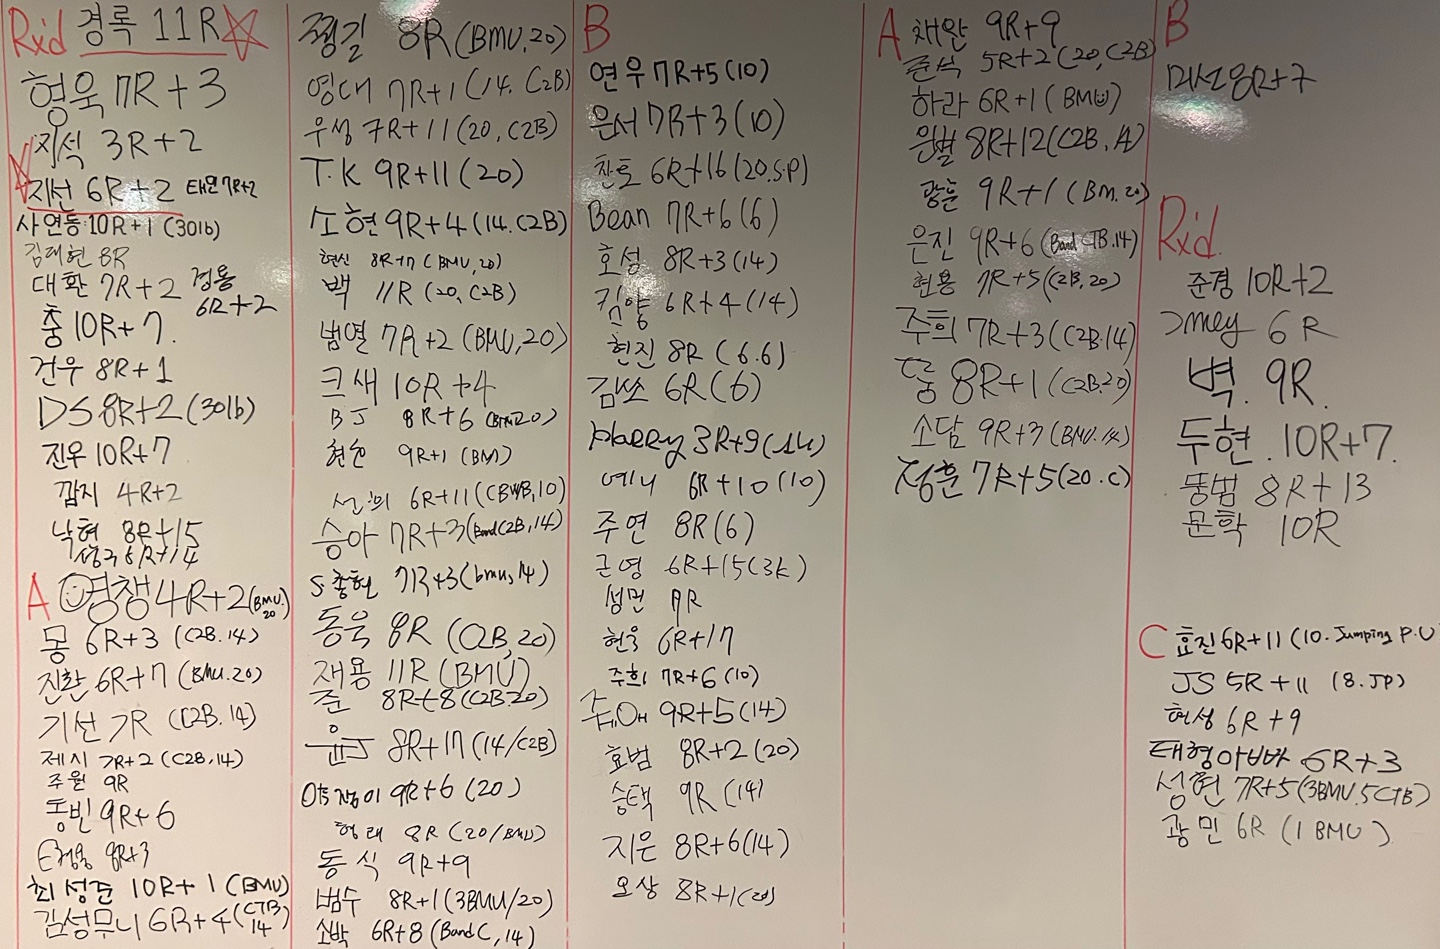 Rxd 경록 11R
형욱 7R+3
지석 3R+2
지선 6R+2 태민 7R+2
사연동 10R+1 (30lb)
김태현 8R
대환 7R+2 경용 6R+2
충 10R+7.
건우 8R+1
DS 8R+2 (30lb)
진우 10R+7
깜지 4R+2
낙현 8R+15
성구 8R+14
A 영챙 4R+2 (BMU.20)
몽 6R+3 (C2B.14)
진환 6R+7 (BMU.20)
기선 7R (C2B.14)
제시 7R+2 (C2B,14)
주원 9R
동빈 9R+6
8R+3
최성준 10R+1 (BMU)
김성무니 6R+4 (CTB 14)
쩡길 8R (BMU,20)
영대 7R+1 (14. C2B)
우성 7R+11 (20, C2B)
T.K 9R+11 (20)
소현 9R+4 (14.C2B)
현신 8R+7 (BMU,20)
백 11R (20, C2B)
범열 7R+2 (BMU,20)
크새 10R+4
BJ 8R+6 (BMU20)
현호 9R+1 (BM)
선희 6R+11 (CBWB,10)
승아 7R+3 (Band C2B,14)
S.총현 7R+3 (bmu,14)
동욱 8R (C2B,20)
재용 11R (BMU)
준 8R+8 (C2B.20)
윤J 8R+17 (14/C2B)
9R+6 (20)
형래 8R (20/BMU)
동식 9R+9
범수 8R+1 (3BMU/20)
소박 6R+8 (Band C, 14)
B
연우 7R+5 (10)
은서 7R+3 (10)
찬호 6R+16 (20.S.P)
Bean 7R+6 (6)
호성 8R+3 (14)
김양 6R+4 (14)
현진 8R (6.6)
김쏘 6R (6)
Harry 3R+9 (14)
예니 6R+10 (10)
주연 8R (6)
근영 6R+15 (3k)
성민 7R
현욱 6R+17
주희 7R+6 (10)
9R+5 (14)
효범 8R+2 (20)
승택 9R (14)
지은 8R+6 (14)
오상 8R+1 (20)
A 채완 9R+9
준석 5R+2 (20, C2B)
하라 6R+1 (BMU)
은별 8R+12 (C2B.14)
광훈 9R+1 (BM.20)
은진 9R+6 (Band CTB.14)
현용 7R+5 (C2B,20)
주희 7R+3 (C2B.14)
8R+1 (C2B.20)
소담 9R+3 (BMU.14)
정훈 7R+5 (20.C)
B
미선 8R+7
Rxd.
준경 10R+2
Jmey 6R
벽. 9R.
두현. 10R+7.
뚱범 8R+13
문학 10R
C 효진 6R+11 (10.Jumping P.U)
JS 5R+11 (8.JP)
현성 6R+9
태형아빠 6R+3
성현 7R+5 (3BMU.5CTB)
광민 6R (1BMU)